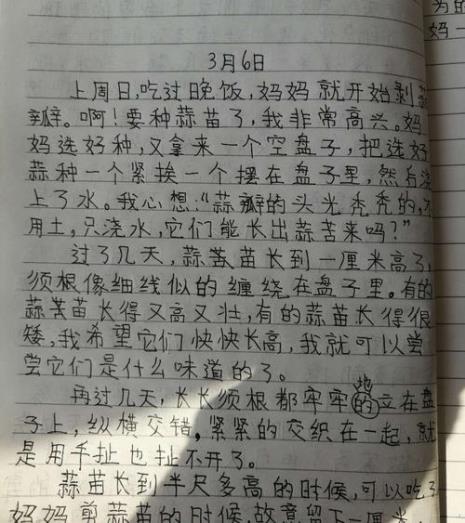 3月6日
上周日,吃过晚饭,妈妈就开始剥蒜
瓣。啊!要种蒜苗了,我非常高兴。妈
妈选好种,又拿来一个空盘子,把选好
蒜种一个紧挨一个摆在盘子里,然后浇
上了水。我心想:“蒜瓣的头光秃秃的,不
用土,只浇水,它们能长出蒜苗来吗?”
过了几天,蒜苗苗长到一厘米高了,
须根像细线似的缠绕在盘子里。有的
蒜苗苗长得又高又壮,有的蒜苗长得很
矮,我希望它们快快长高,我就可以尝
尝它们是什么味道的了。
再过几天,长长须根都牢牢的地立在盘
子上,纵横交错,紧紧的交织在一起,就
是用手扯也扯不开了。
蒜苗长到半尺多高的时候,可以吃了
妈妈剪蒜苗的时候,故意留下一厘米
为的
妈一